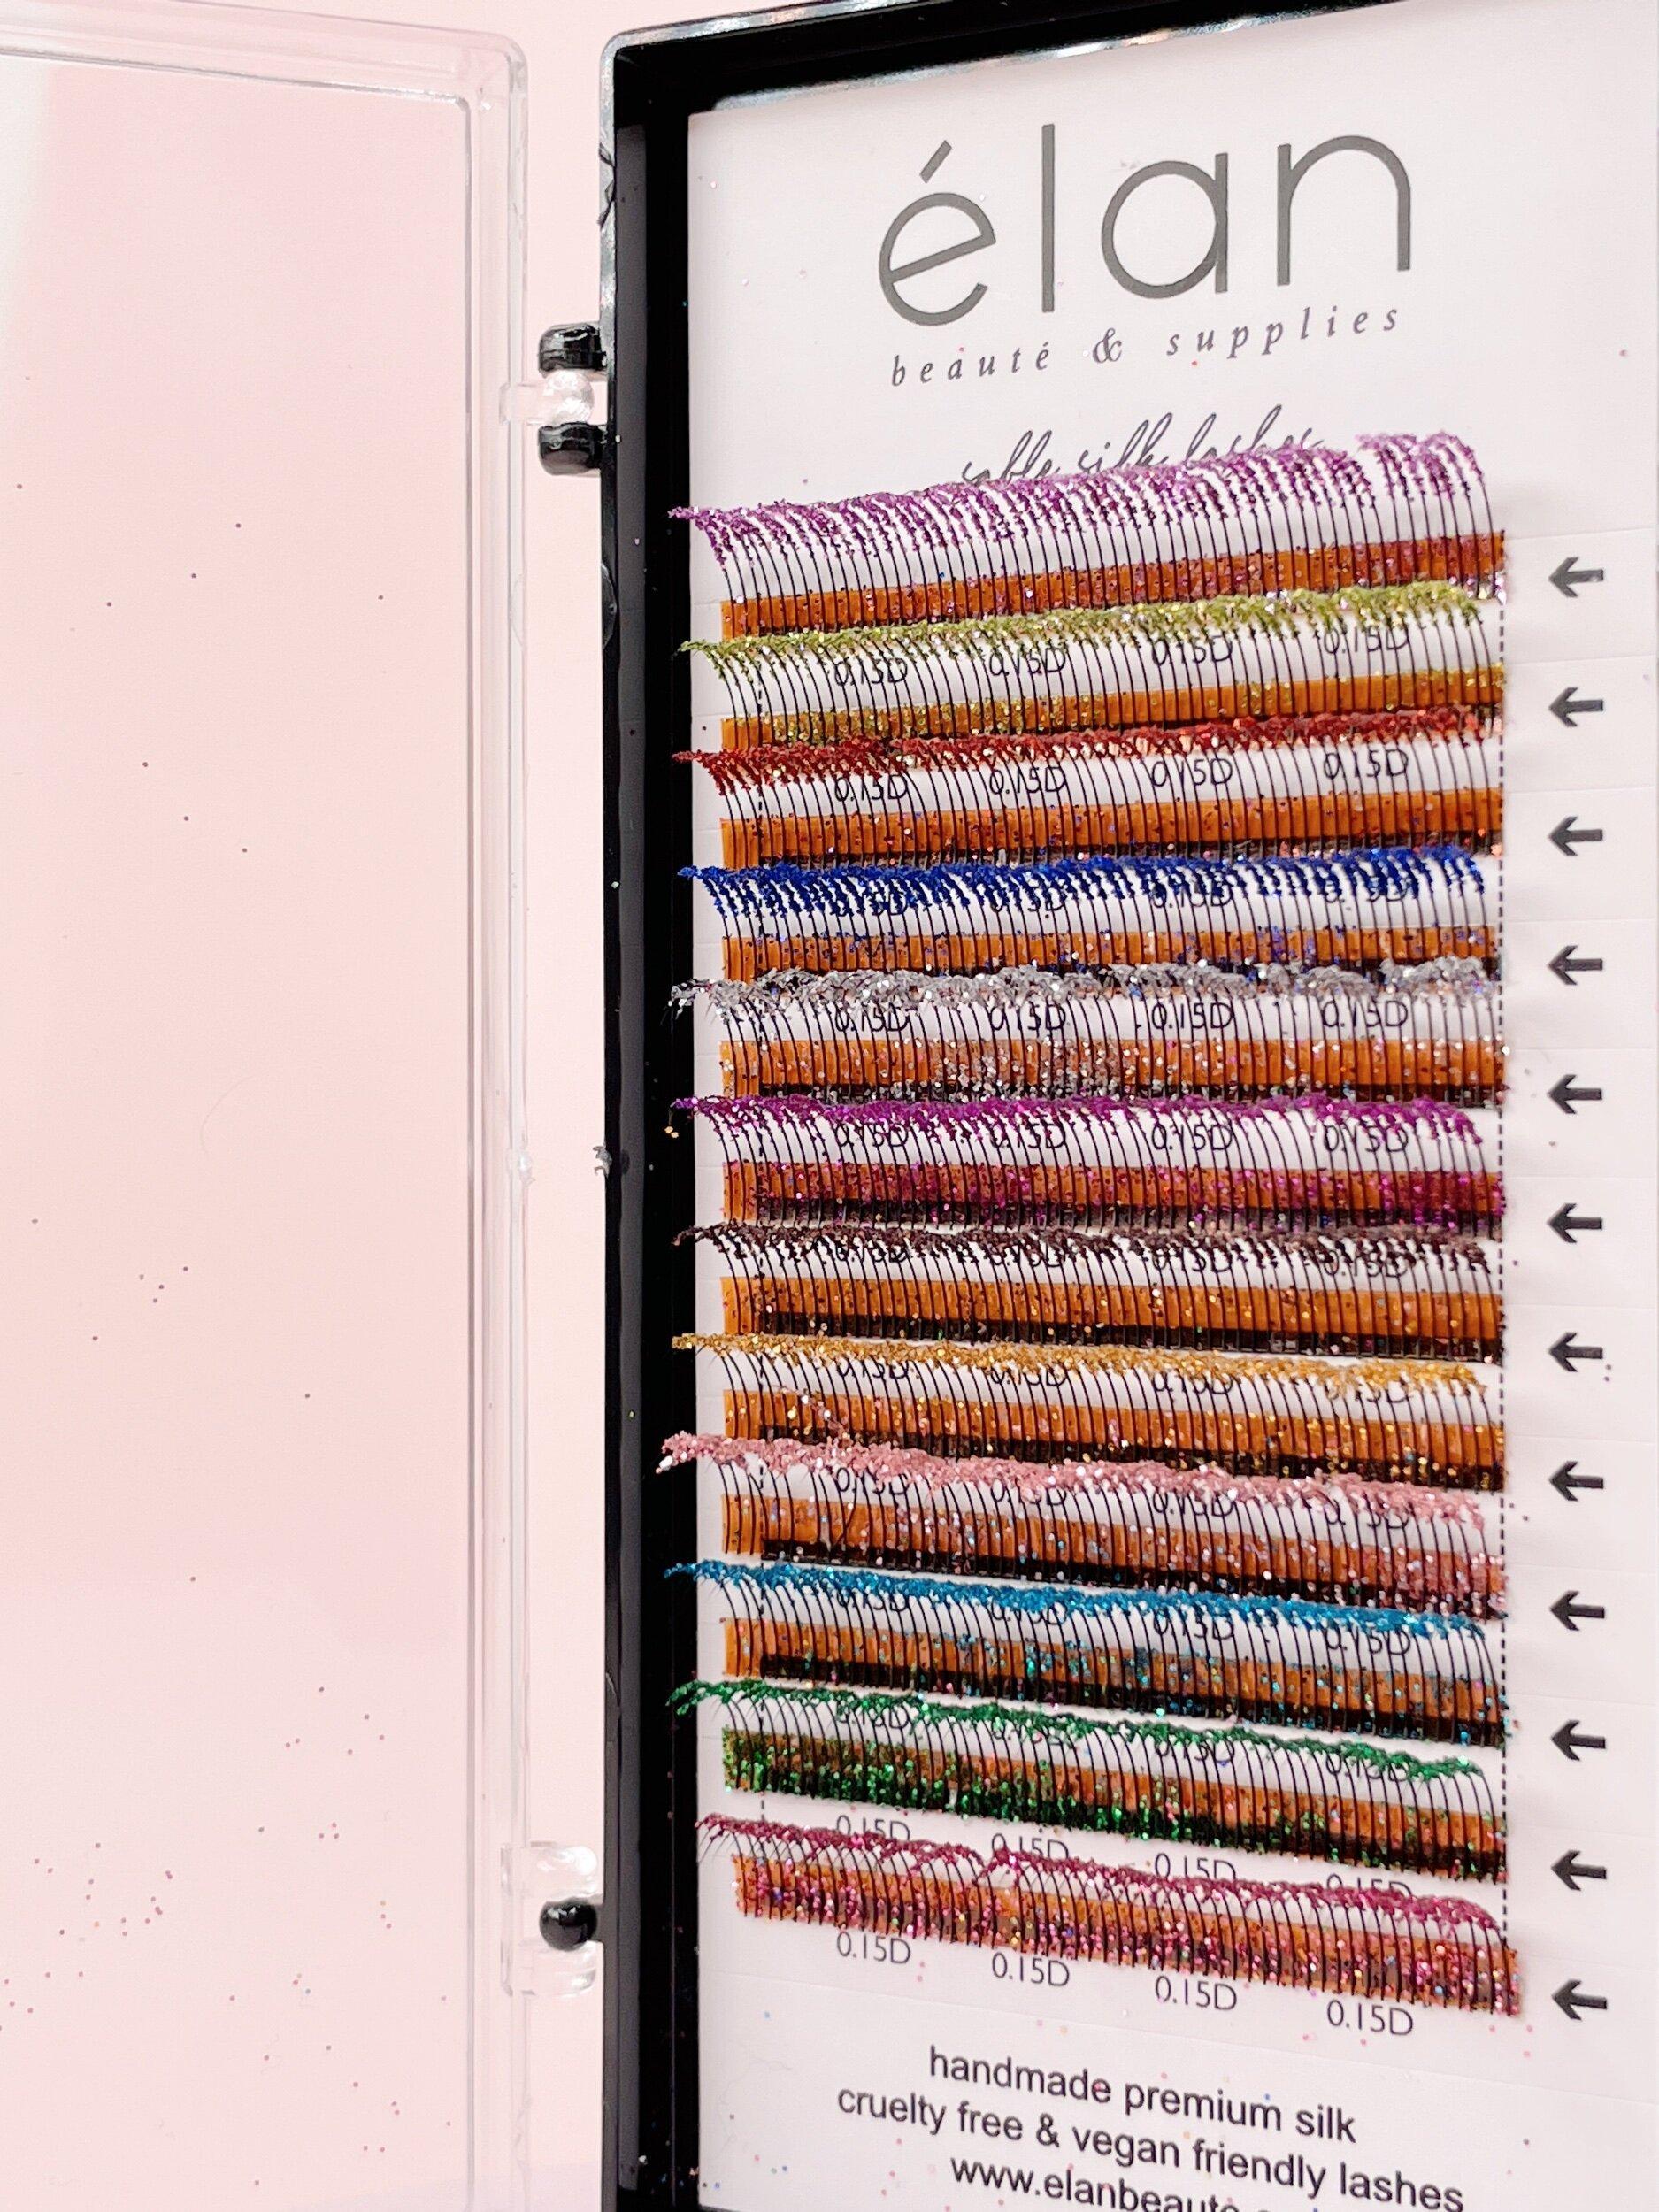 élan
beauté & supplies
sable silk lashes
0.15D 0.15D 0.15D 0.15D
0.15D 0.15D 0.15D 0.15D
0.15D 0.15D 0.15D 0.15D
0.15D 0.15D 0.15D 0.15D
0.15D 0.15D 0.15D 0.15D
0.15D 0.15D 0.15D 0.15D
0.15D 0.15D 0.15D 0.15D
0.15D 0.15D 0.15D 0.15D
0.15D 0.15D 0.15D 0.15D
0.15D 0.15D 0.15D 0.15D
0.15D 0.15D 0.15D 0.15D
0.15D 0.15D 0.15D 0.15D
handmade premium silk
cruelty free & vegan friendly lashes
www.elanbeaute